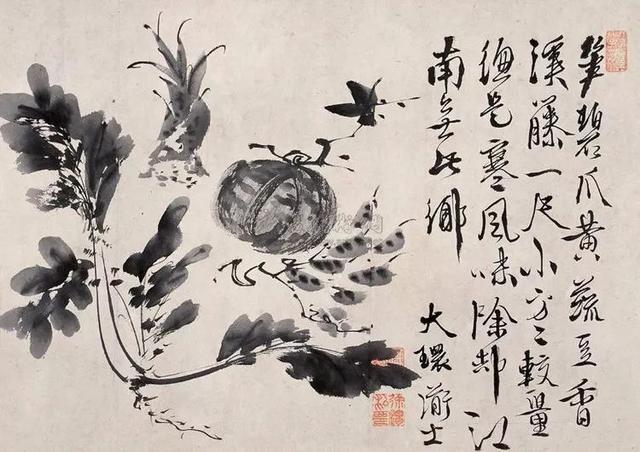 碧瓜黄蔬豆香
溪藤一尺小方〻較量
總是寒風味除却江
南無此鄉
大環士